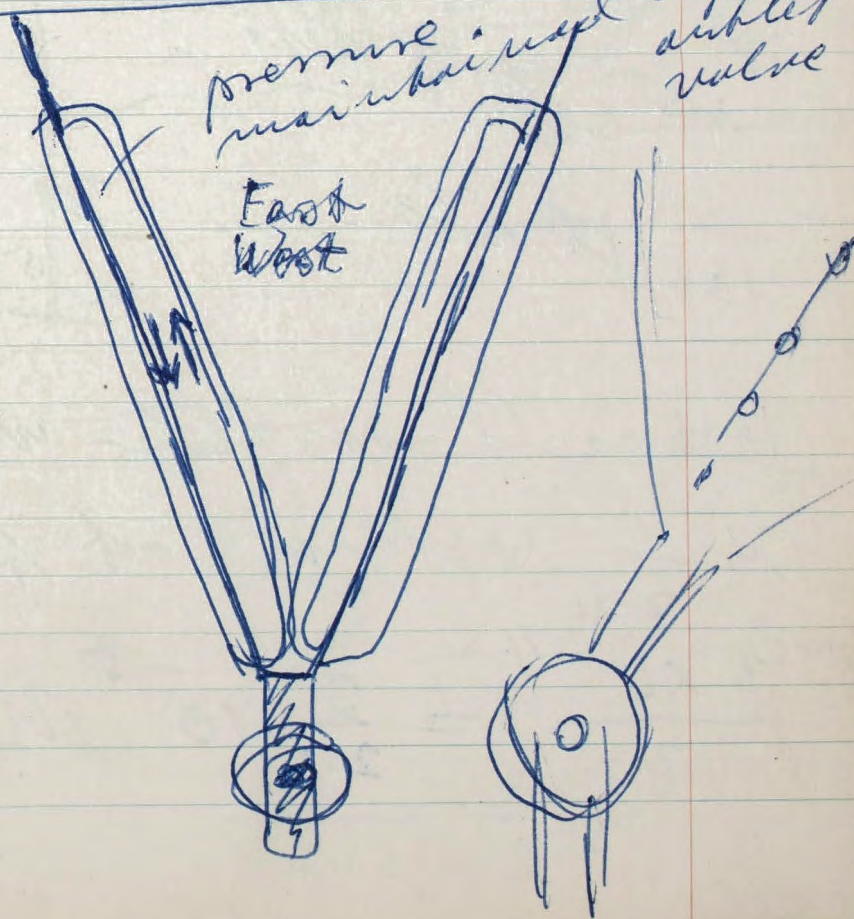 pressure
maintained
outlet
valve
East
West